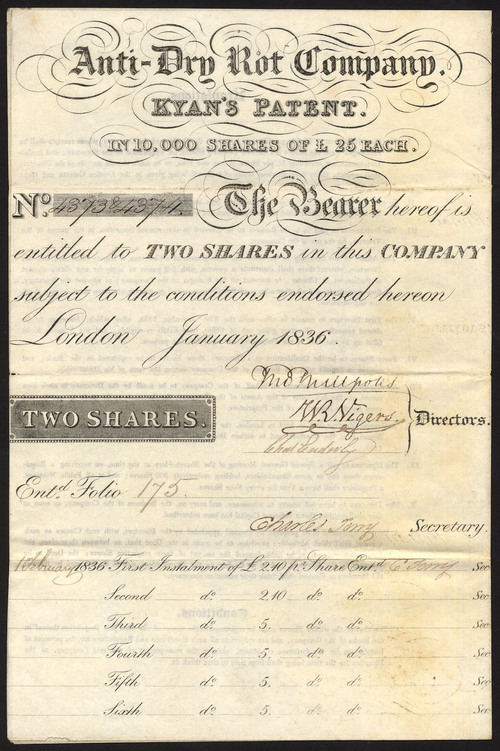 Anti-Dry Rot Company.
KYAN'S PATENT.
IN 10,000 SHARES OF £ 25 EACH.
No. 4373 & 4374. The Bearer hereof is
entitled to TWO SHARES in this COMPANY
subject to the conditions endorsed hereon
London January 1836.
TWO SHARES.
Directors.
Entd. Folio 175.
Charles Terry Secretary.
1 February 1836 First Instalment of £ 2,10 pr. Share Entd. C Terry Sec
Second do. 2,10 do. do. Sec
Third do. 5,, do. do. Sec
Fourth do. 5,, do. do. Sec
Fifth do. 5,, do. do. Sec
Sixth do. 5,, do. do. Sec